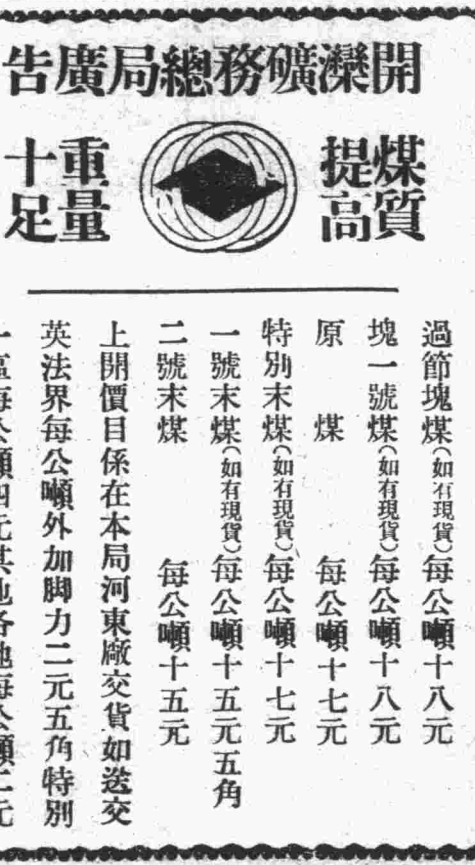 開灤礦務總局廣告
煤質提高
重量十足
過節塊煤(如有現貨)每公噸十八元
塊一號煤(如有現貨)每公噸十八元
原煤 每公噸十七元
特別末煤(如有現貨)每公噸十七元
一號末煤(如有現貨)每公噸十五元五角
二號末煤 每公噸十五元
上開價目係在本局河東廠交貨如送交
英法界每公噸外加脚力二元五角特別
一區每公噸四元其他各地每公噸二元